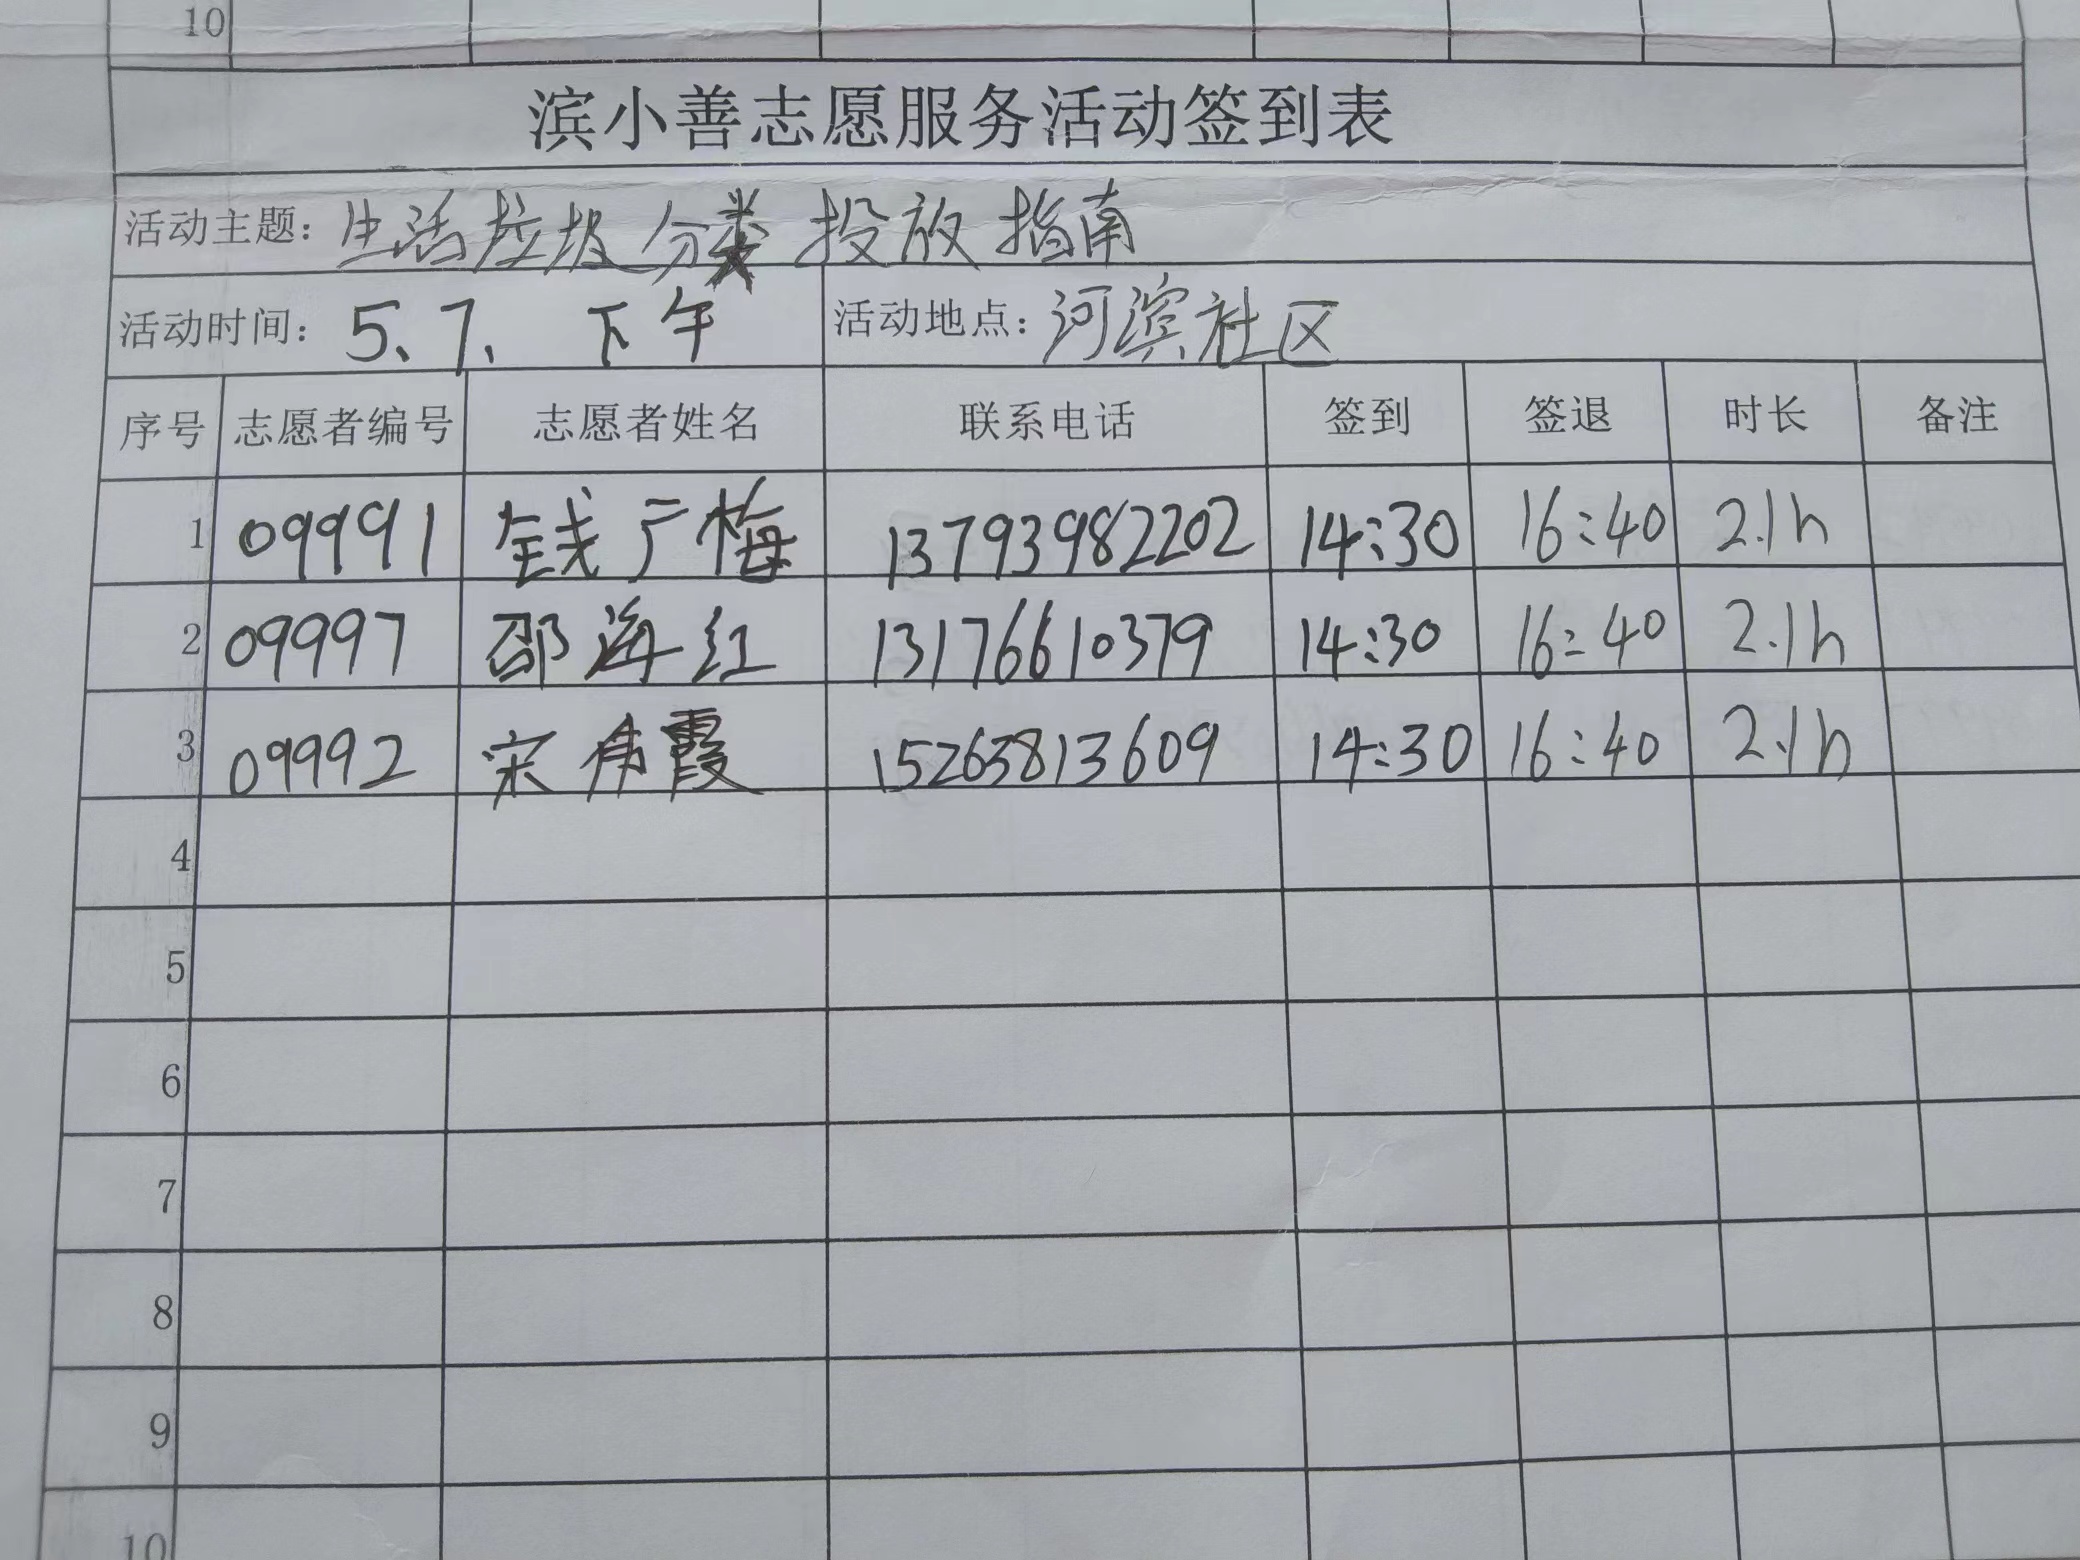 10
滨小善志愿服务活动签到表
活动主题：生活垃圾分类投放指南
活动时间：5、7、下午 活动地点：河滨社区
序号 志愿者编号 志愿者姓名 联系电话 签到 签退 时长 备注
1 09991 钱广梅 13793982202 14:30 16:40 2.1h
2 09997 邵海红 13176610379 14:30 16:40 2.1h
3 09992 宋 霞 15263813609 14:30 16:40 2.1h
4
5
6
7
8
9
10